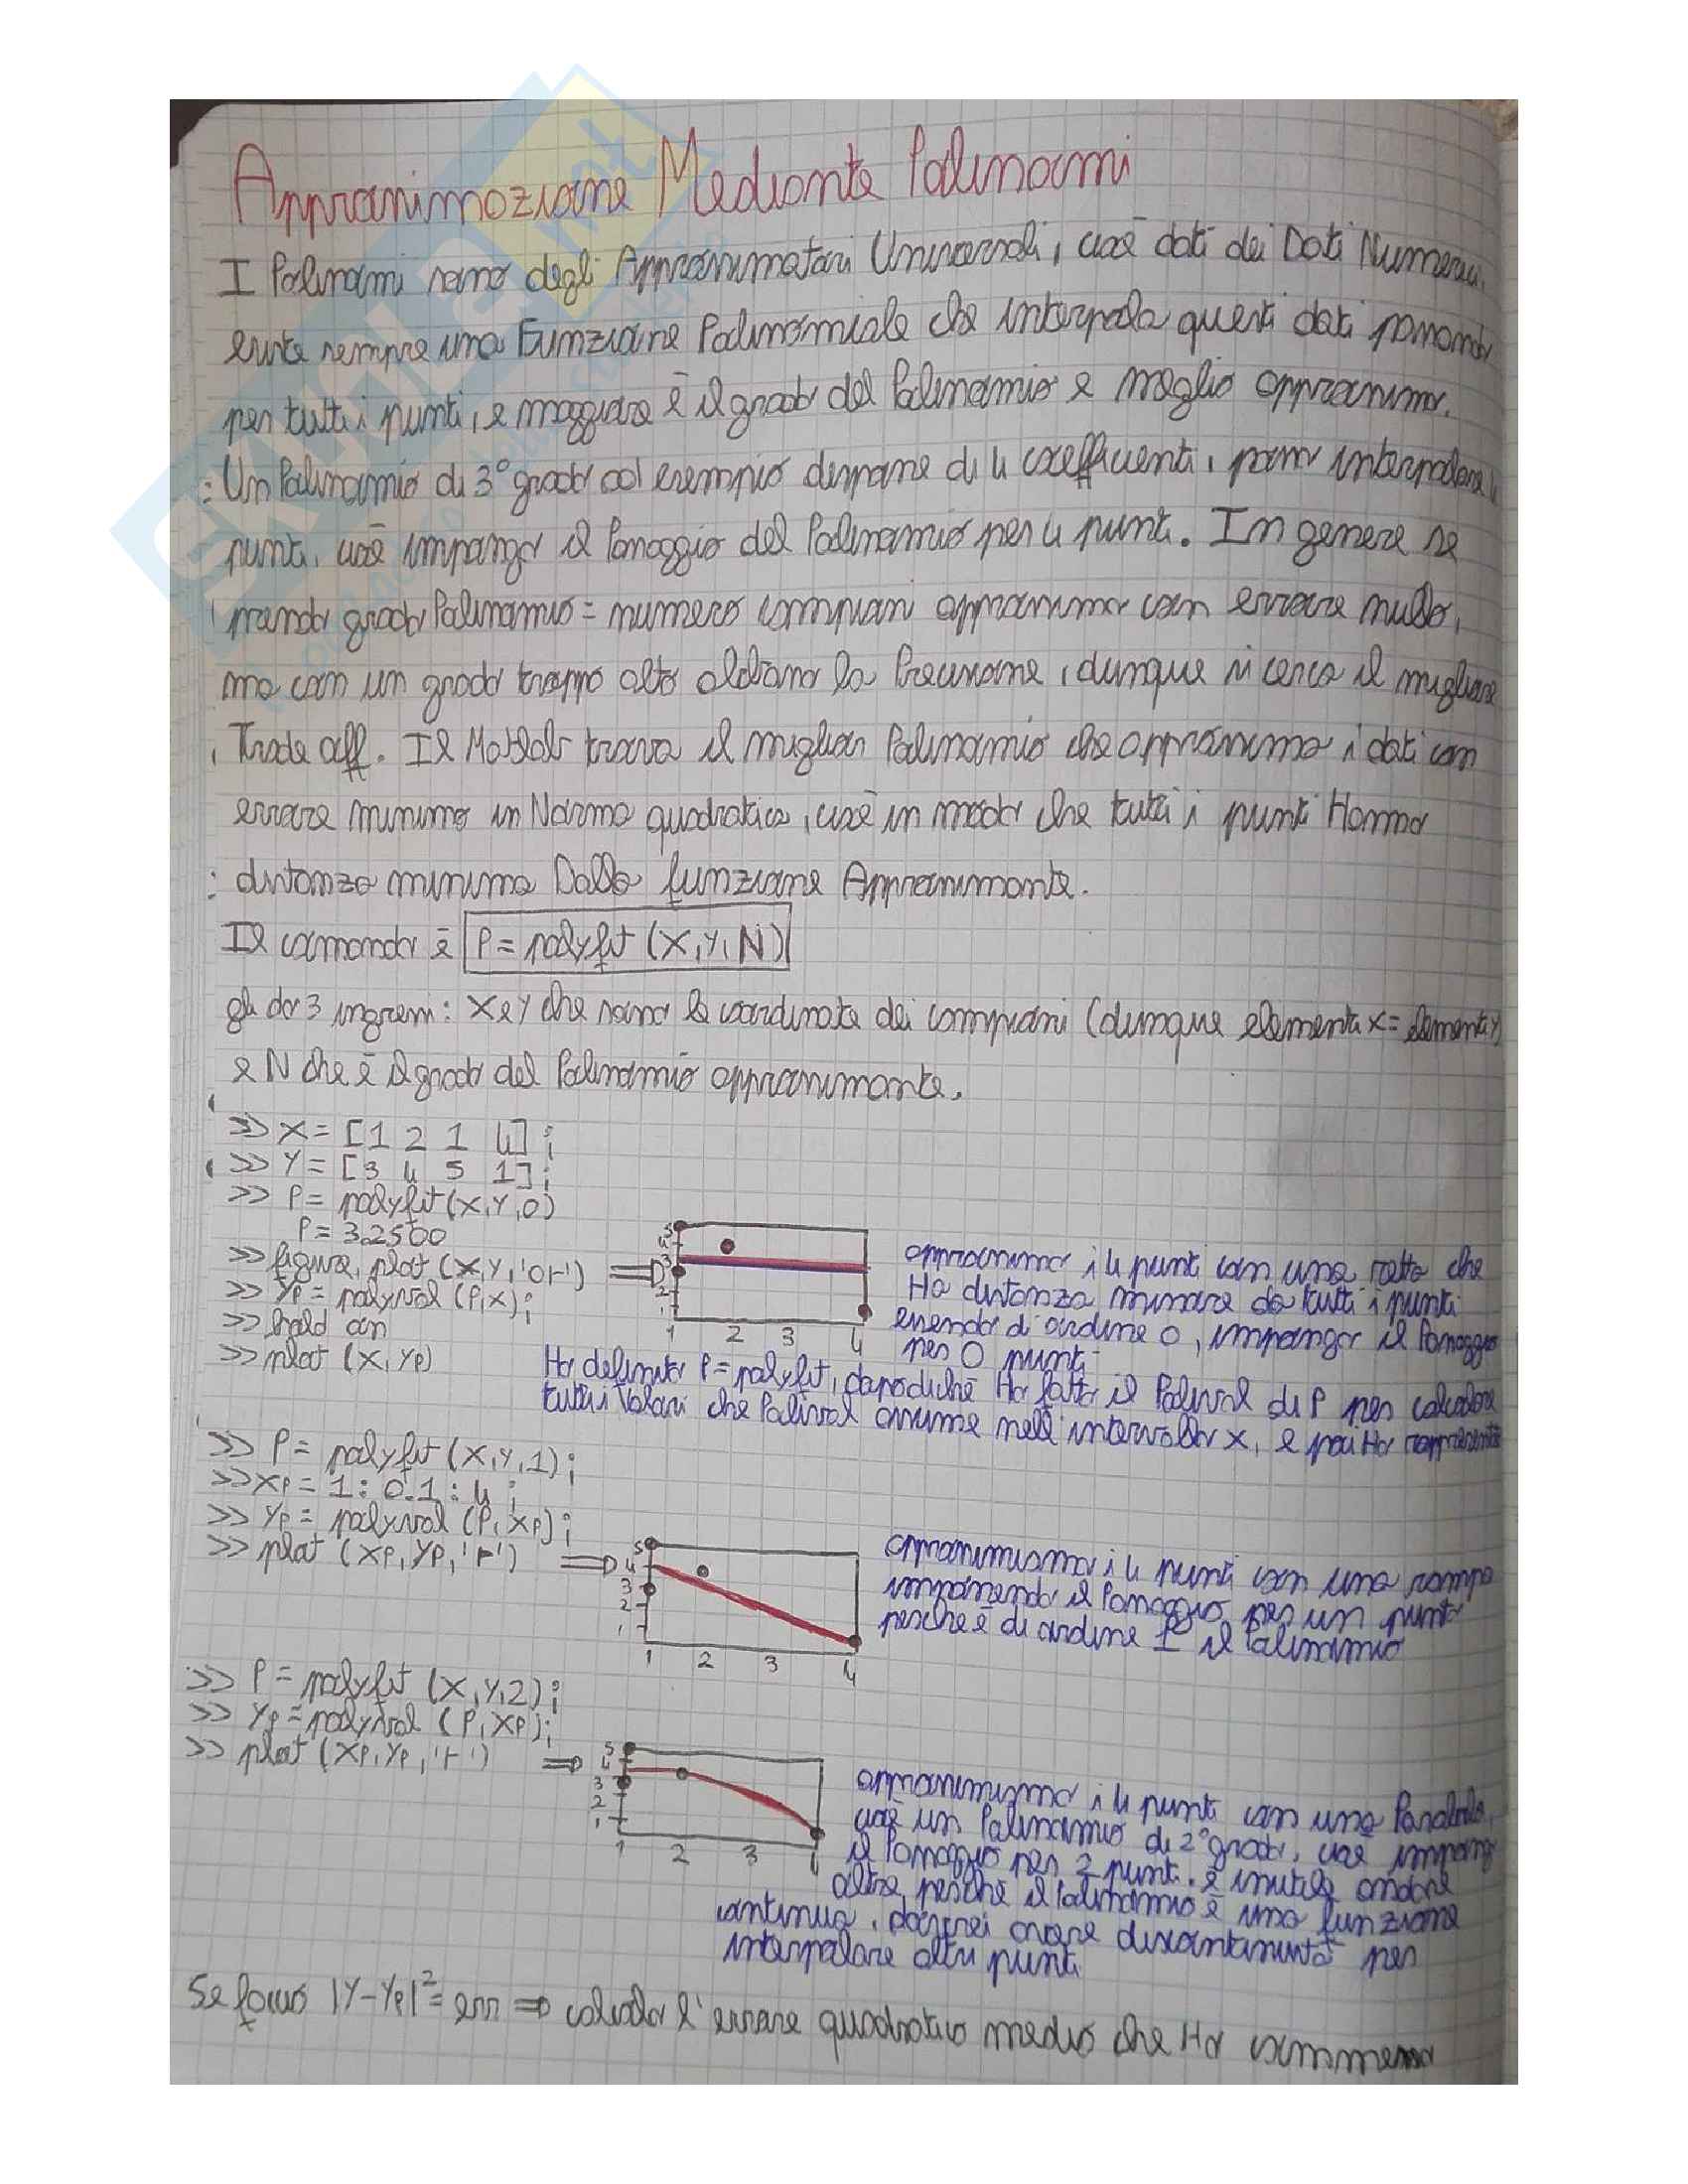 Approssimazione Mediante Polinomi
I Polinomi sono degli Approssimatori Universali, cioè dati dei Dati Numerici
esiste sempre una Funzione Polinomiale che interpola questi dati passando
per tutti i punti, e maggiore è il grado del Polinomio e meglio approssimo.
Un Polinomio di 3° grado ad esempio dispone di 4 coefficienti, posso interpolare 4
punti, cioè impongo il Passaggio del Polinomio per 4 punti. In genere se
prendo grado Polinomio = numero campioni approssimo con errore nullo,
ma con un grado troppo alto abbiamo la Precisione, dunque si cerca il migliore
Trade off. Il Matlab trova il miglior Polinomio che approssima i dati con
errore minimo in Norma quadratica, cioè in modo che tutti i punti Hanno
distanza minima Dalla funzione Approssimante.
Il comando è P = polyfit (X,Y,N)
gli do 3 ingressi: X e Y che sono le coordinate dei campioni (dunque elementi X = elementi Y)
e N che è il grado del Polinomio approssimante.
>> X = [1 2 1 4];
>> Y = [3 4 5 1];
>> P = polyfit(X,Y,0)
P = 3.2500
>> figure, plot (X,Y,'or') ⇒
>> Yp = polyval (P,X);
>> hold on
>> plot (X,Yp)
5
4
3
2
1
1 2 3 4
approssimo i 4 punti con una retta che
Ha distanza minore da tutti i punti
essendo d'ordine 0, impongo il Passaggio
per 0 punti
Ho definito P = polyfit, dopodiché Ho fatto il Polival di P per calcolare
tutti i Valori che Polival assume nell'intervallo X, e poi Ho rappresentato
>> P = polyfit (X,Y,1);
>> Xp = 1 : 0.1 : 4;
>> Yp = polyval (P,Xp);
>> plot (Xp,Yp,'r') ⇒
5
4
3
2
1
1 2 3 4
approssimiamo i 4 punti con una rampa
imponendo il Passaggio per un punto
perché è di ordine 1 il Polinomio
>> P = polyfit (X,Y,2);
>> Yp = polyval (P,Xp);
>> plot (Xp,Yp,'r') ⇒
5
4
3
2
1
1 2 3 4
approssimiamo i 4 punti con una Parabola,
cioè un Polinomio di 2° grado, cioè impongo
il Passaggio per 2 punti. è inutile andare
oltre perché il Polinomio è una funzione
continua, dovrei avere discontinuità per
interpolare altri punti
Se faccio |Y-Yp|² = err ⇒ calcolo l'errore quadratico medio che Ho commesso